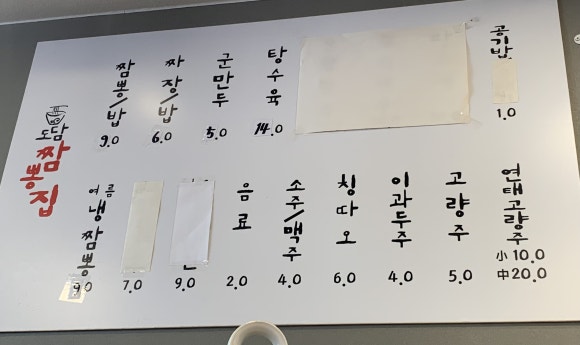 도담
짬뽕집
짬뽕/밥
9.0
짜장/밥
6.0
군만두
5.0
탕수육
14.0
공기밥
1.0
여름
냉짬뽕
9.0
7.0
9.0
음료
2.0
소주/맥주
4.0
칭따오
6.0
이과두주
4.0
고량주
5.0
연태고량주
小 10.0
中 20.0